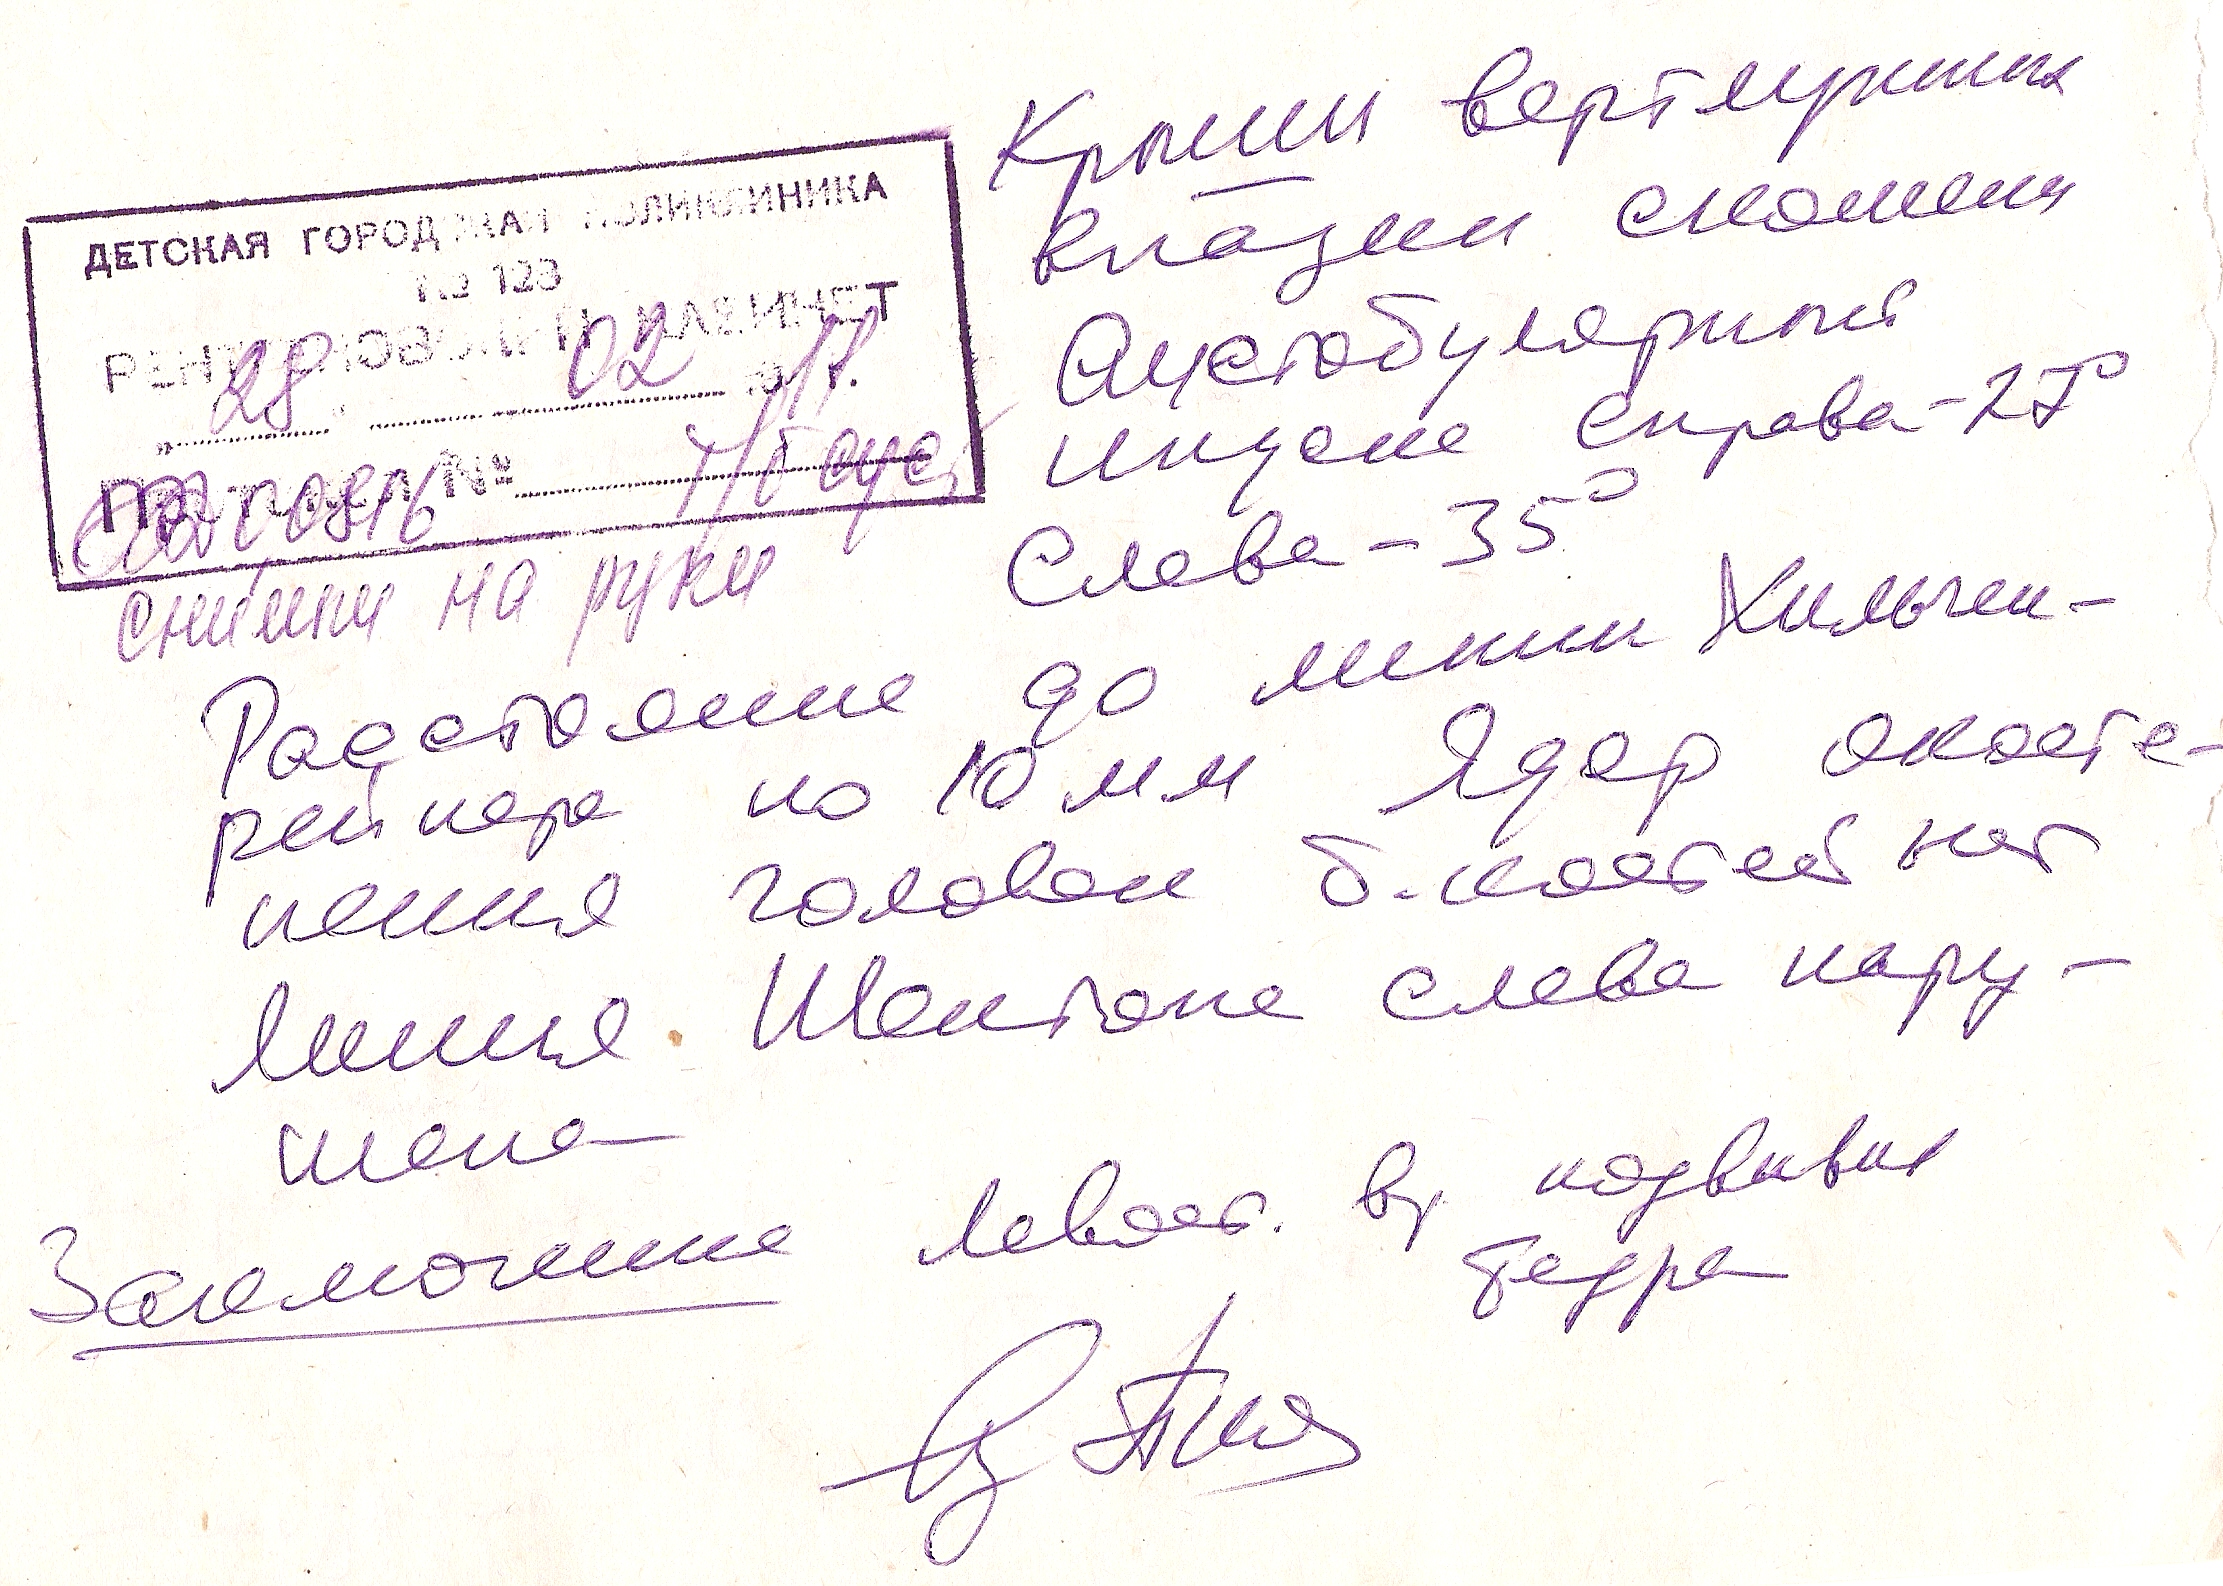 ДЕТСКАЯ ГОРОДСКАЯ ПОЛИКЛИНИКА
№ 123
РЕНТГЕНОВСКИЙ КАБИНЕТ
28 02 11 г.
№
снимки на руки
Крыши вертлужных
впадин скошены
Ацетабулярный
индекс справа - 27°
Слева - 35°
Расстояние до линии Хильген-
рейнера по 10 мм Ядер окосте-
нения головок б. костей нет
Линия Шентона слева нару-
шена
Заключение левост. вр подвывих
бедра